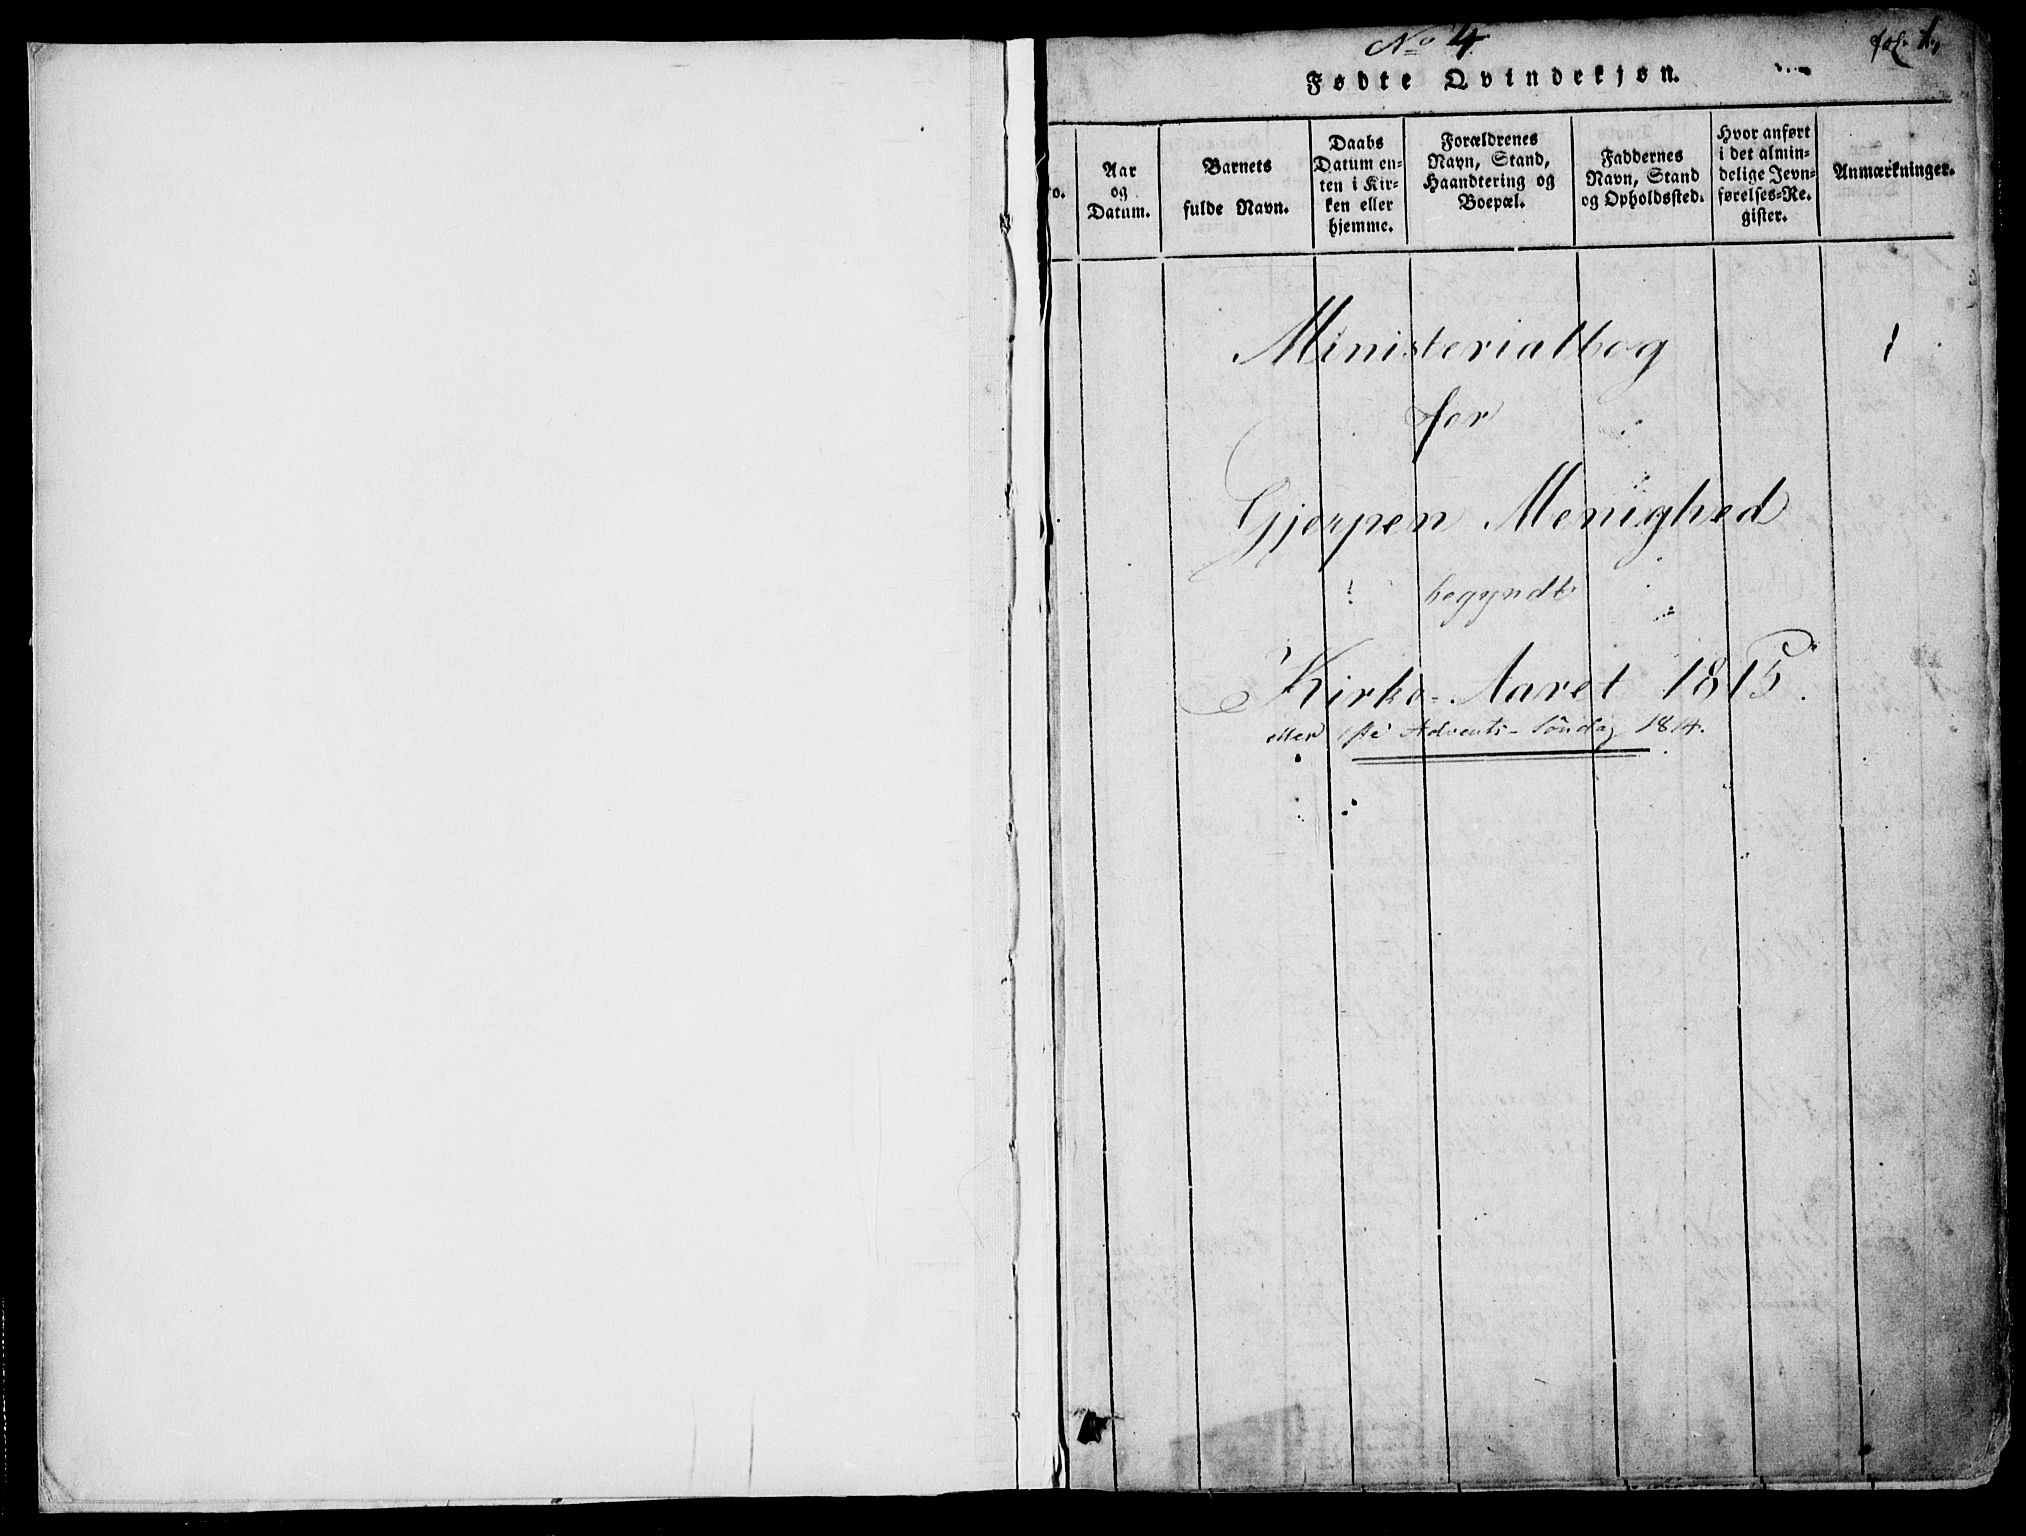 No 4.
fol. 1.
Fødte Qvindekjøn.
o.
Aar
og
Datum.
Barnets
fulde Navn.
Daabs
Datum en-
ten i Kir-
ken eller
hjemme.
Forældrenes
Navn, Stand,
Haandtering og
Boepæl.
Faddernes
Navn, Stand
og Opholdssted.
Hvor anført
i det almin-
delige Jevn-
førelses-Re-
gister.
Anmærkninger.
Ministerialbog
1
for
Gjerpen Menighed
begyndt
Kirke-Aaret 1815.
eller 1ste Advents-Søndag 1814.